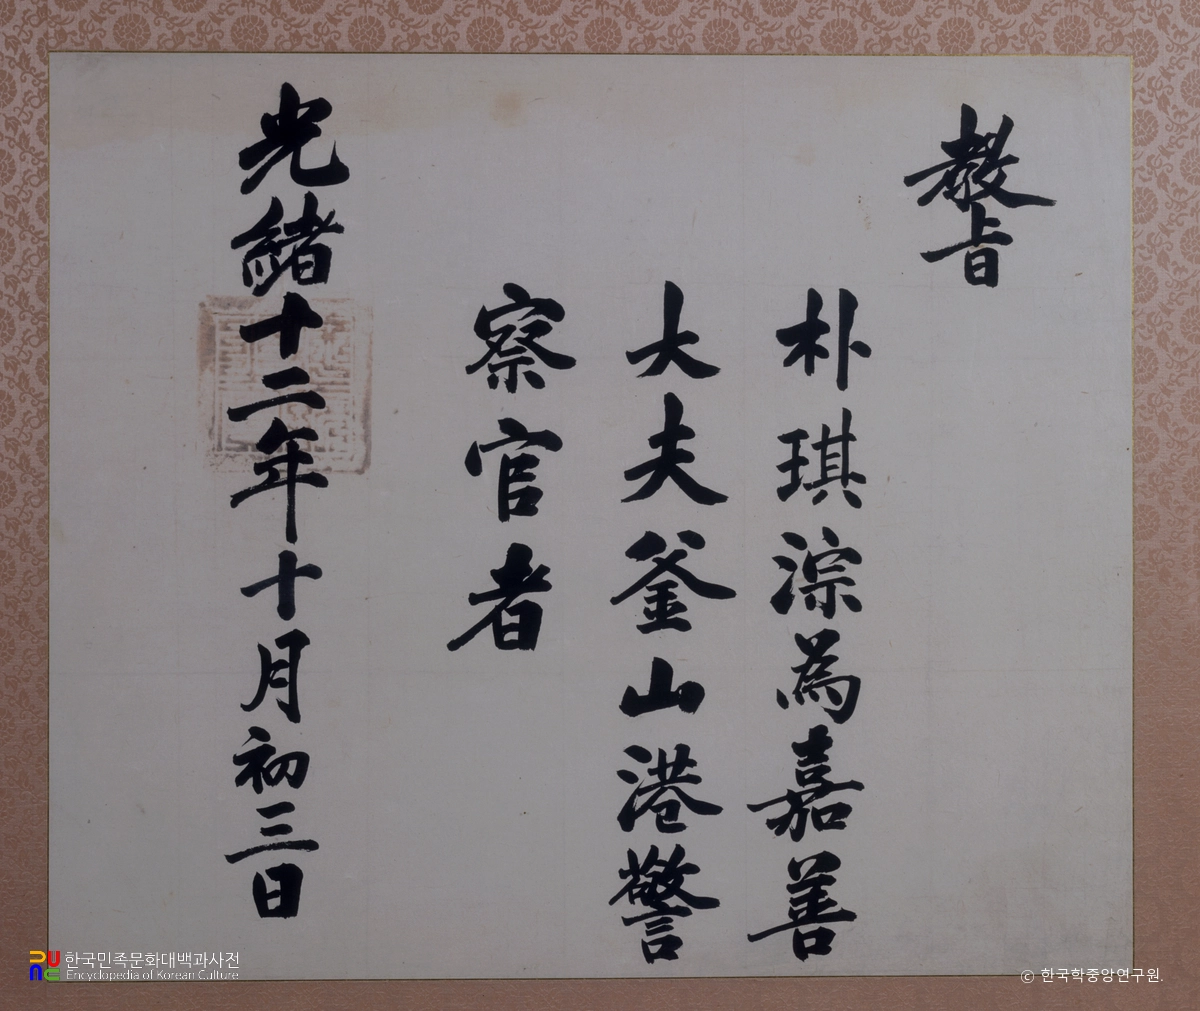 敎旨
朴琪淙為嘉善
大夫釜山港警
察官者
光緖十二年十月初三日
한국민족문화대백과사전
Encyclopedia of Korean Culture
ⓒ 한국학중앙연구원.